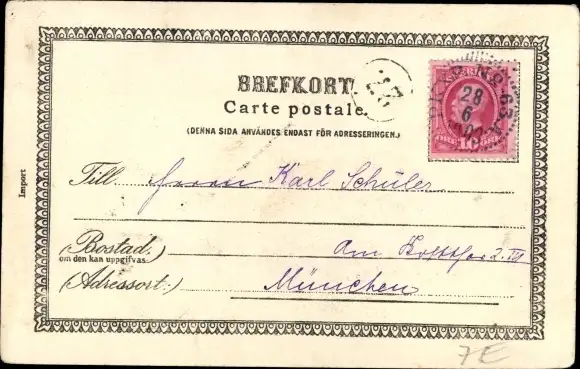 BREFKORT
Carte postale.
(DENNA SIDA ANVÄNDES ENDAST FÖR ADRESSERINGEN.)
SVERIGE
PKXP No 63
28
6
10
Till Herrn Karl Schüler
Am 2. III
(Bostad,)
om den kan uppgifvas.
(Adressort:) München
Import
7E